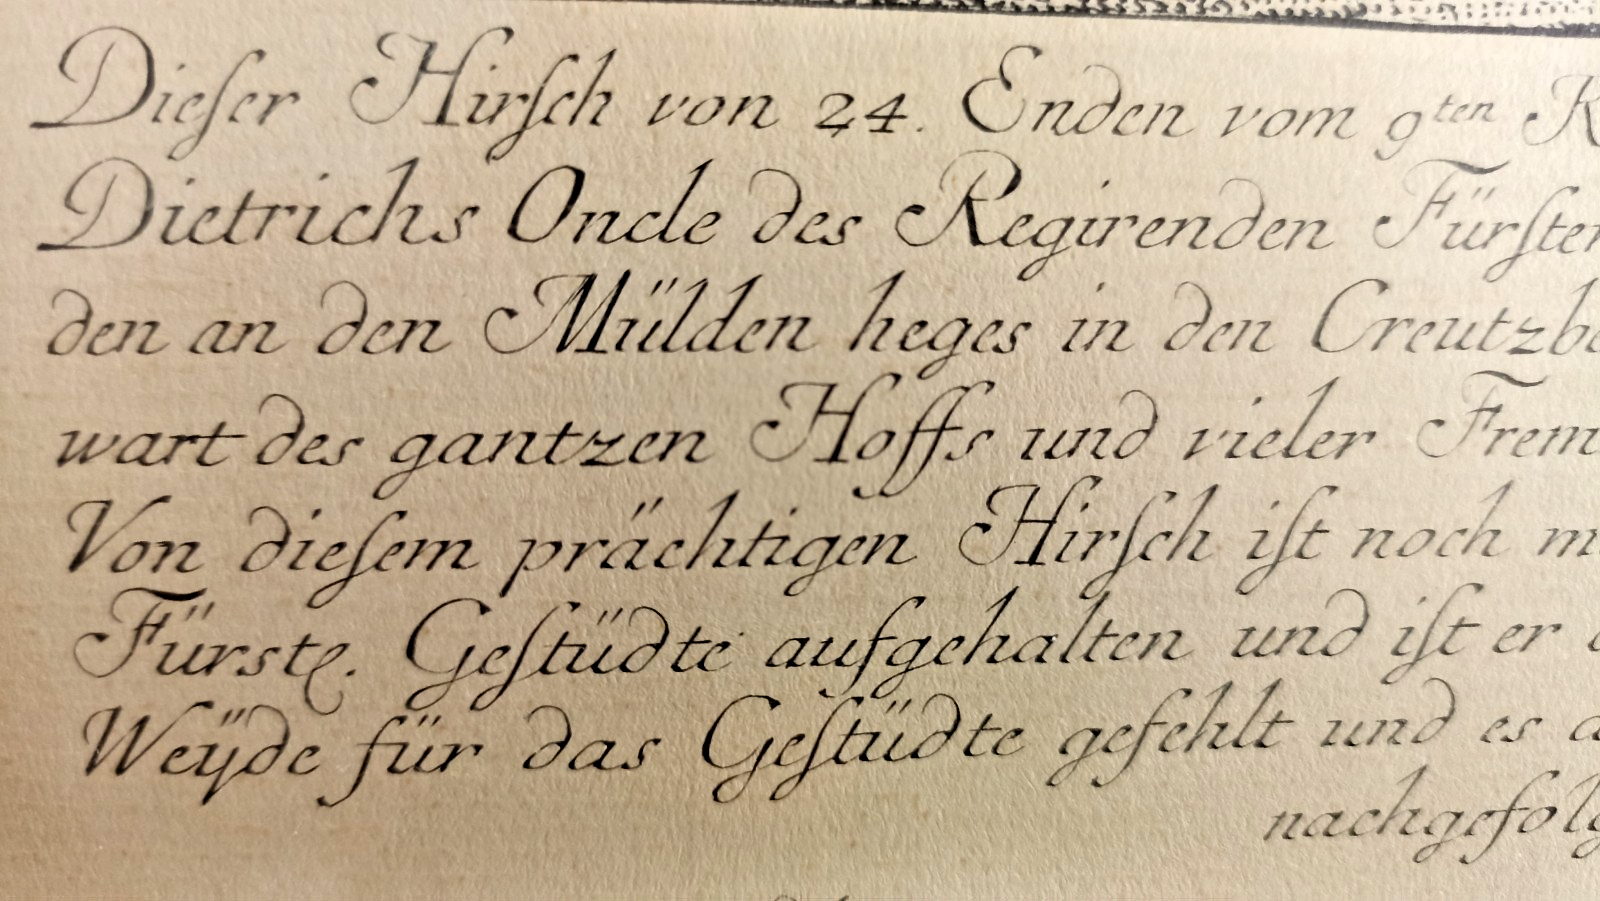 Dieſer Hirſch von 24. Enden vom 9ten
Dietrichs Oncle des Regirenden Fürſten
den an den Mülden heges in den Creutzbe
wart des gantzen Hoffs und vieler Frem
Von dieſem prächtigen Hirſch iſt noch
Fürstl. Geſtüdte aufgehalten und iſt er
Weÿde für das Geſtüdte gefehlt und es
nachgefolg